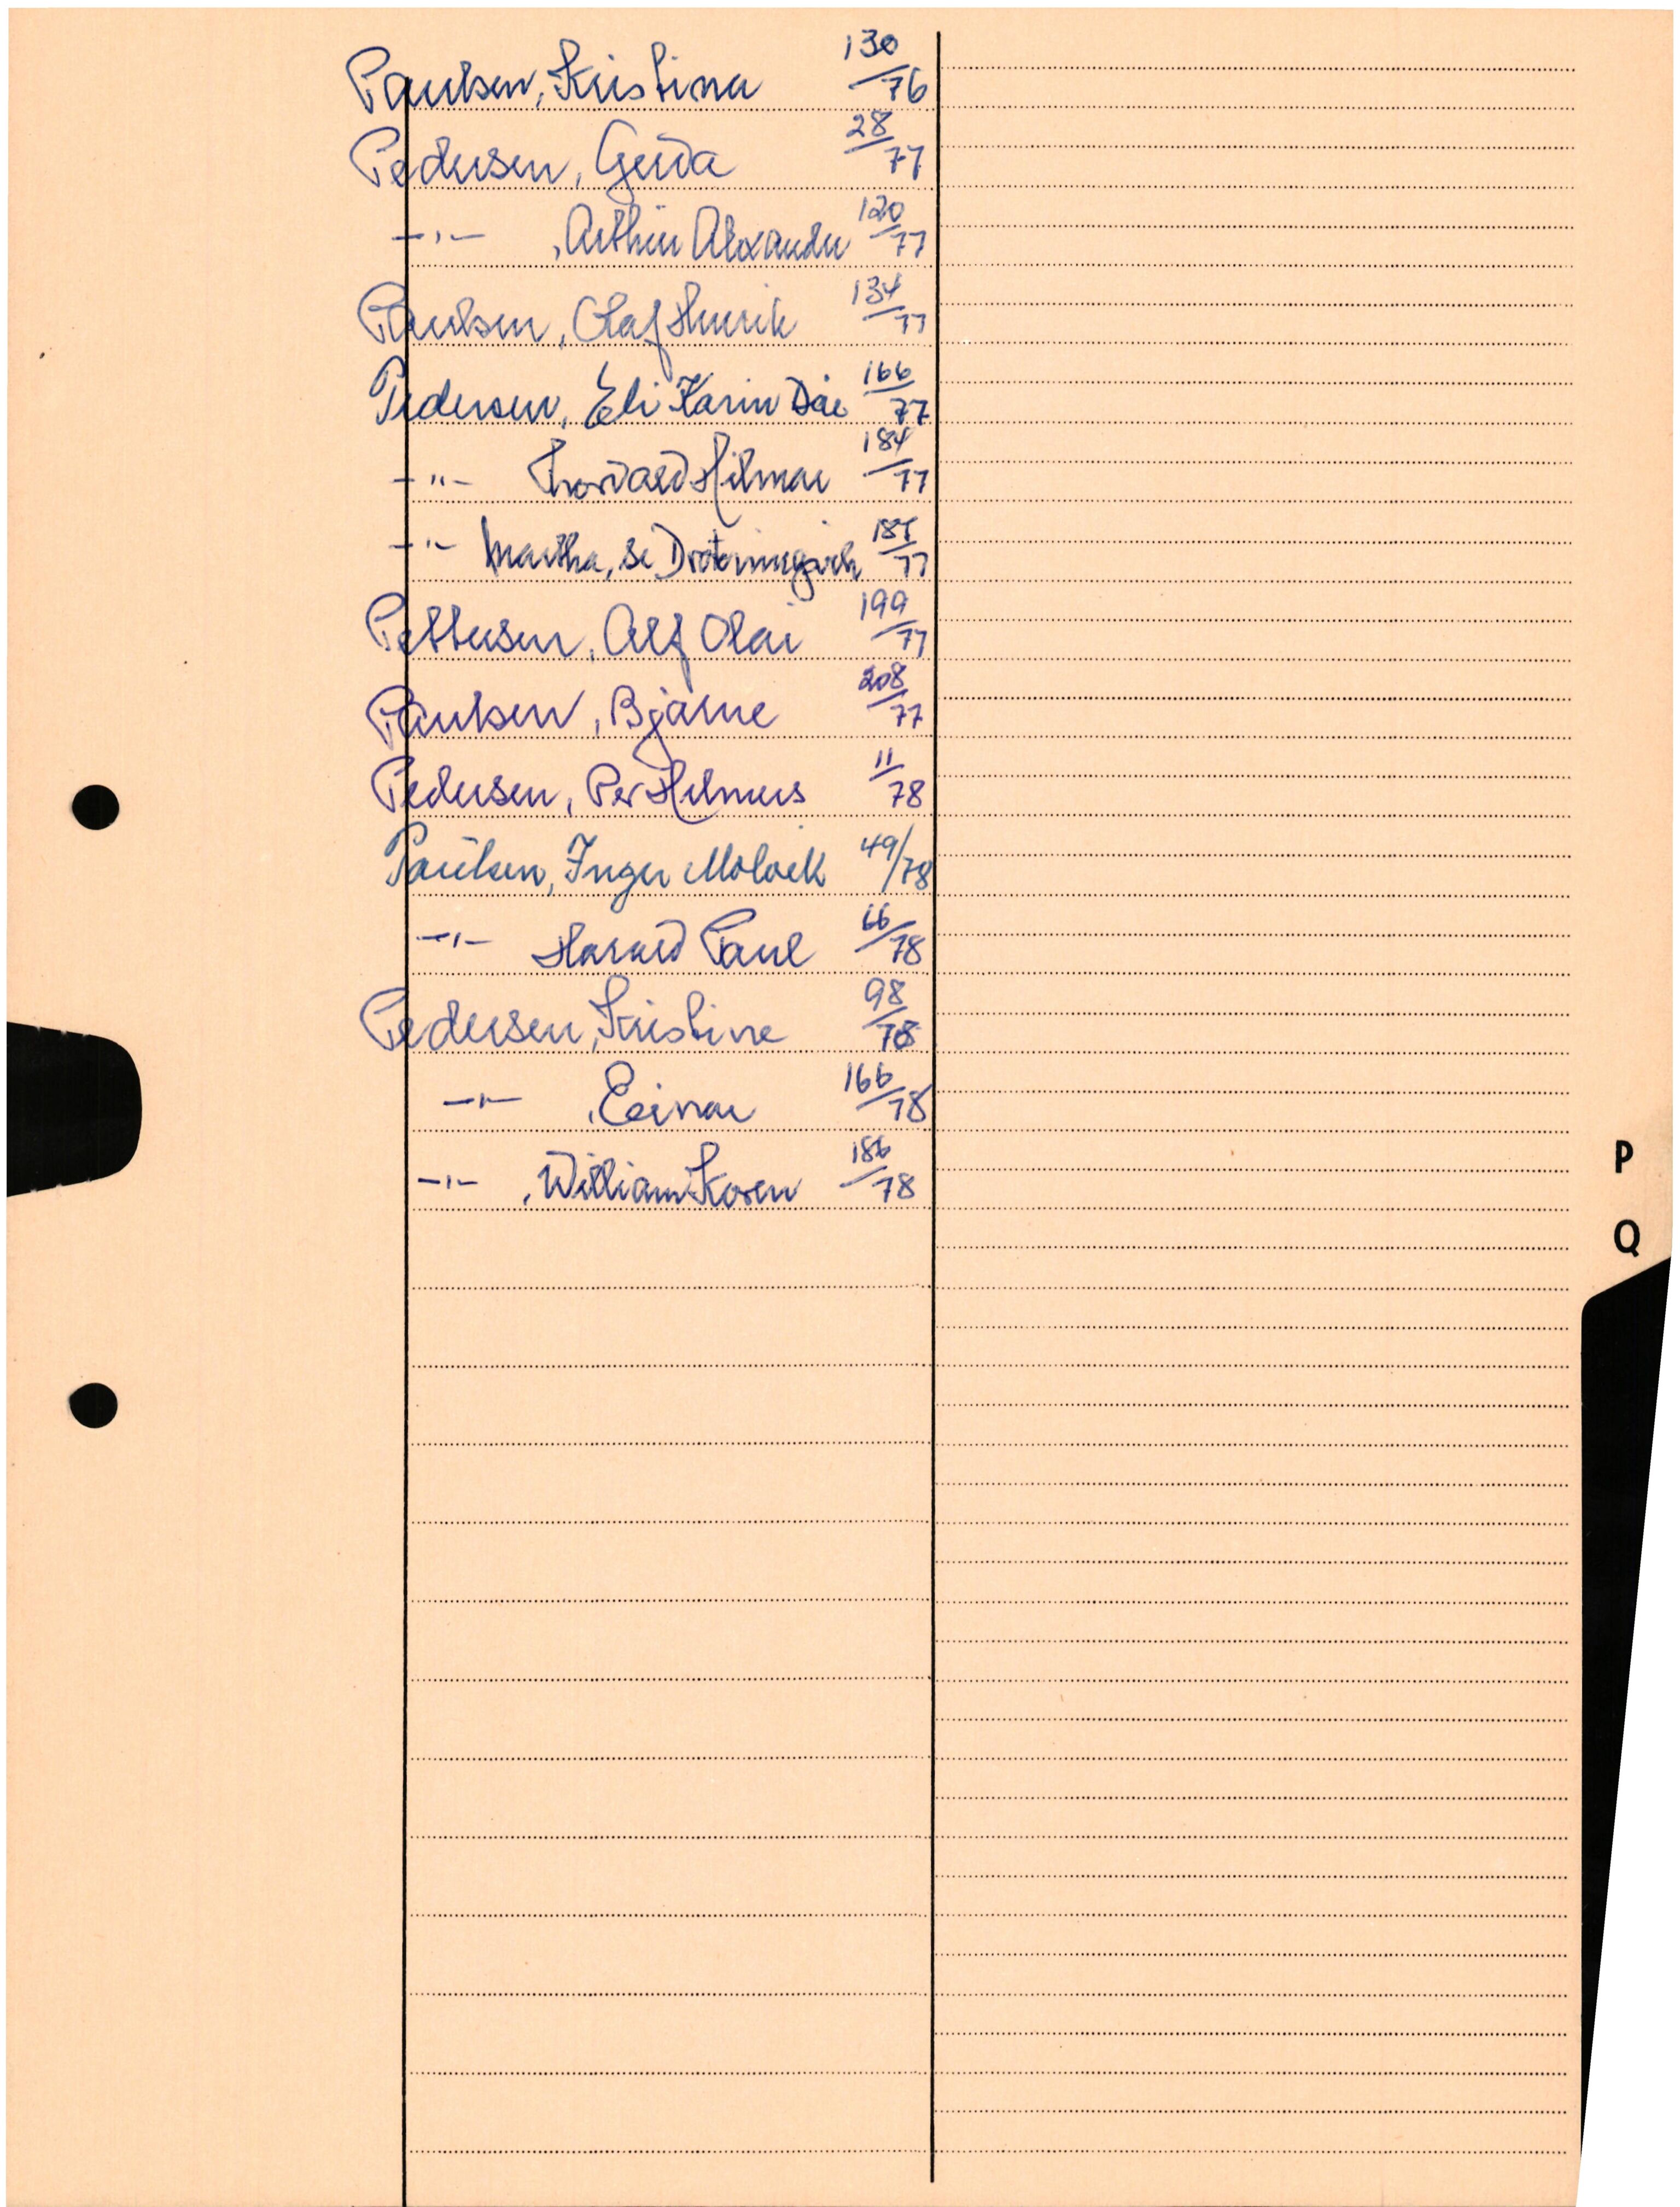 Paulsen, Kristina 130/76
Pedersen, Gerda 28/77
-"- , Arthur Alexander 120/77
Paulsen, Olaf Henrik 134/77
Pedersen, Eli Karin Dåe 166/77
-"- Thorvald Hilmar 184/77
-"- Martha, se Drotningsvik 187/77
Pettersen, Alf Olai 199/77
Paulsen, Bjarne 208/77
Pedersen, Per Hilmus 11/78
Paulsen, Inger Molvik 49/78
-"- Harald Paul 66/78
Pedersen, Kristine 98/78
-"- , Einar 166/78
-"- , William Koren 186/78
P
Q